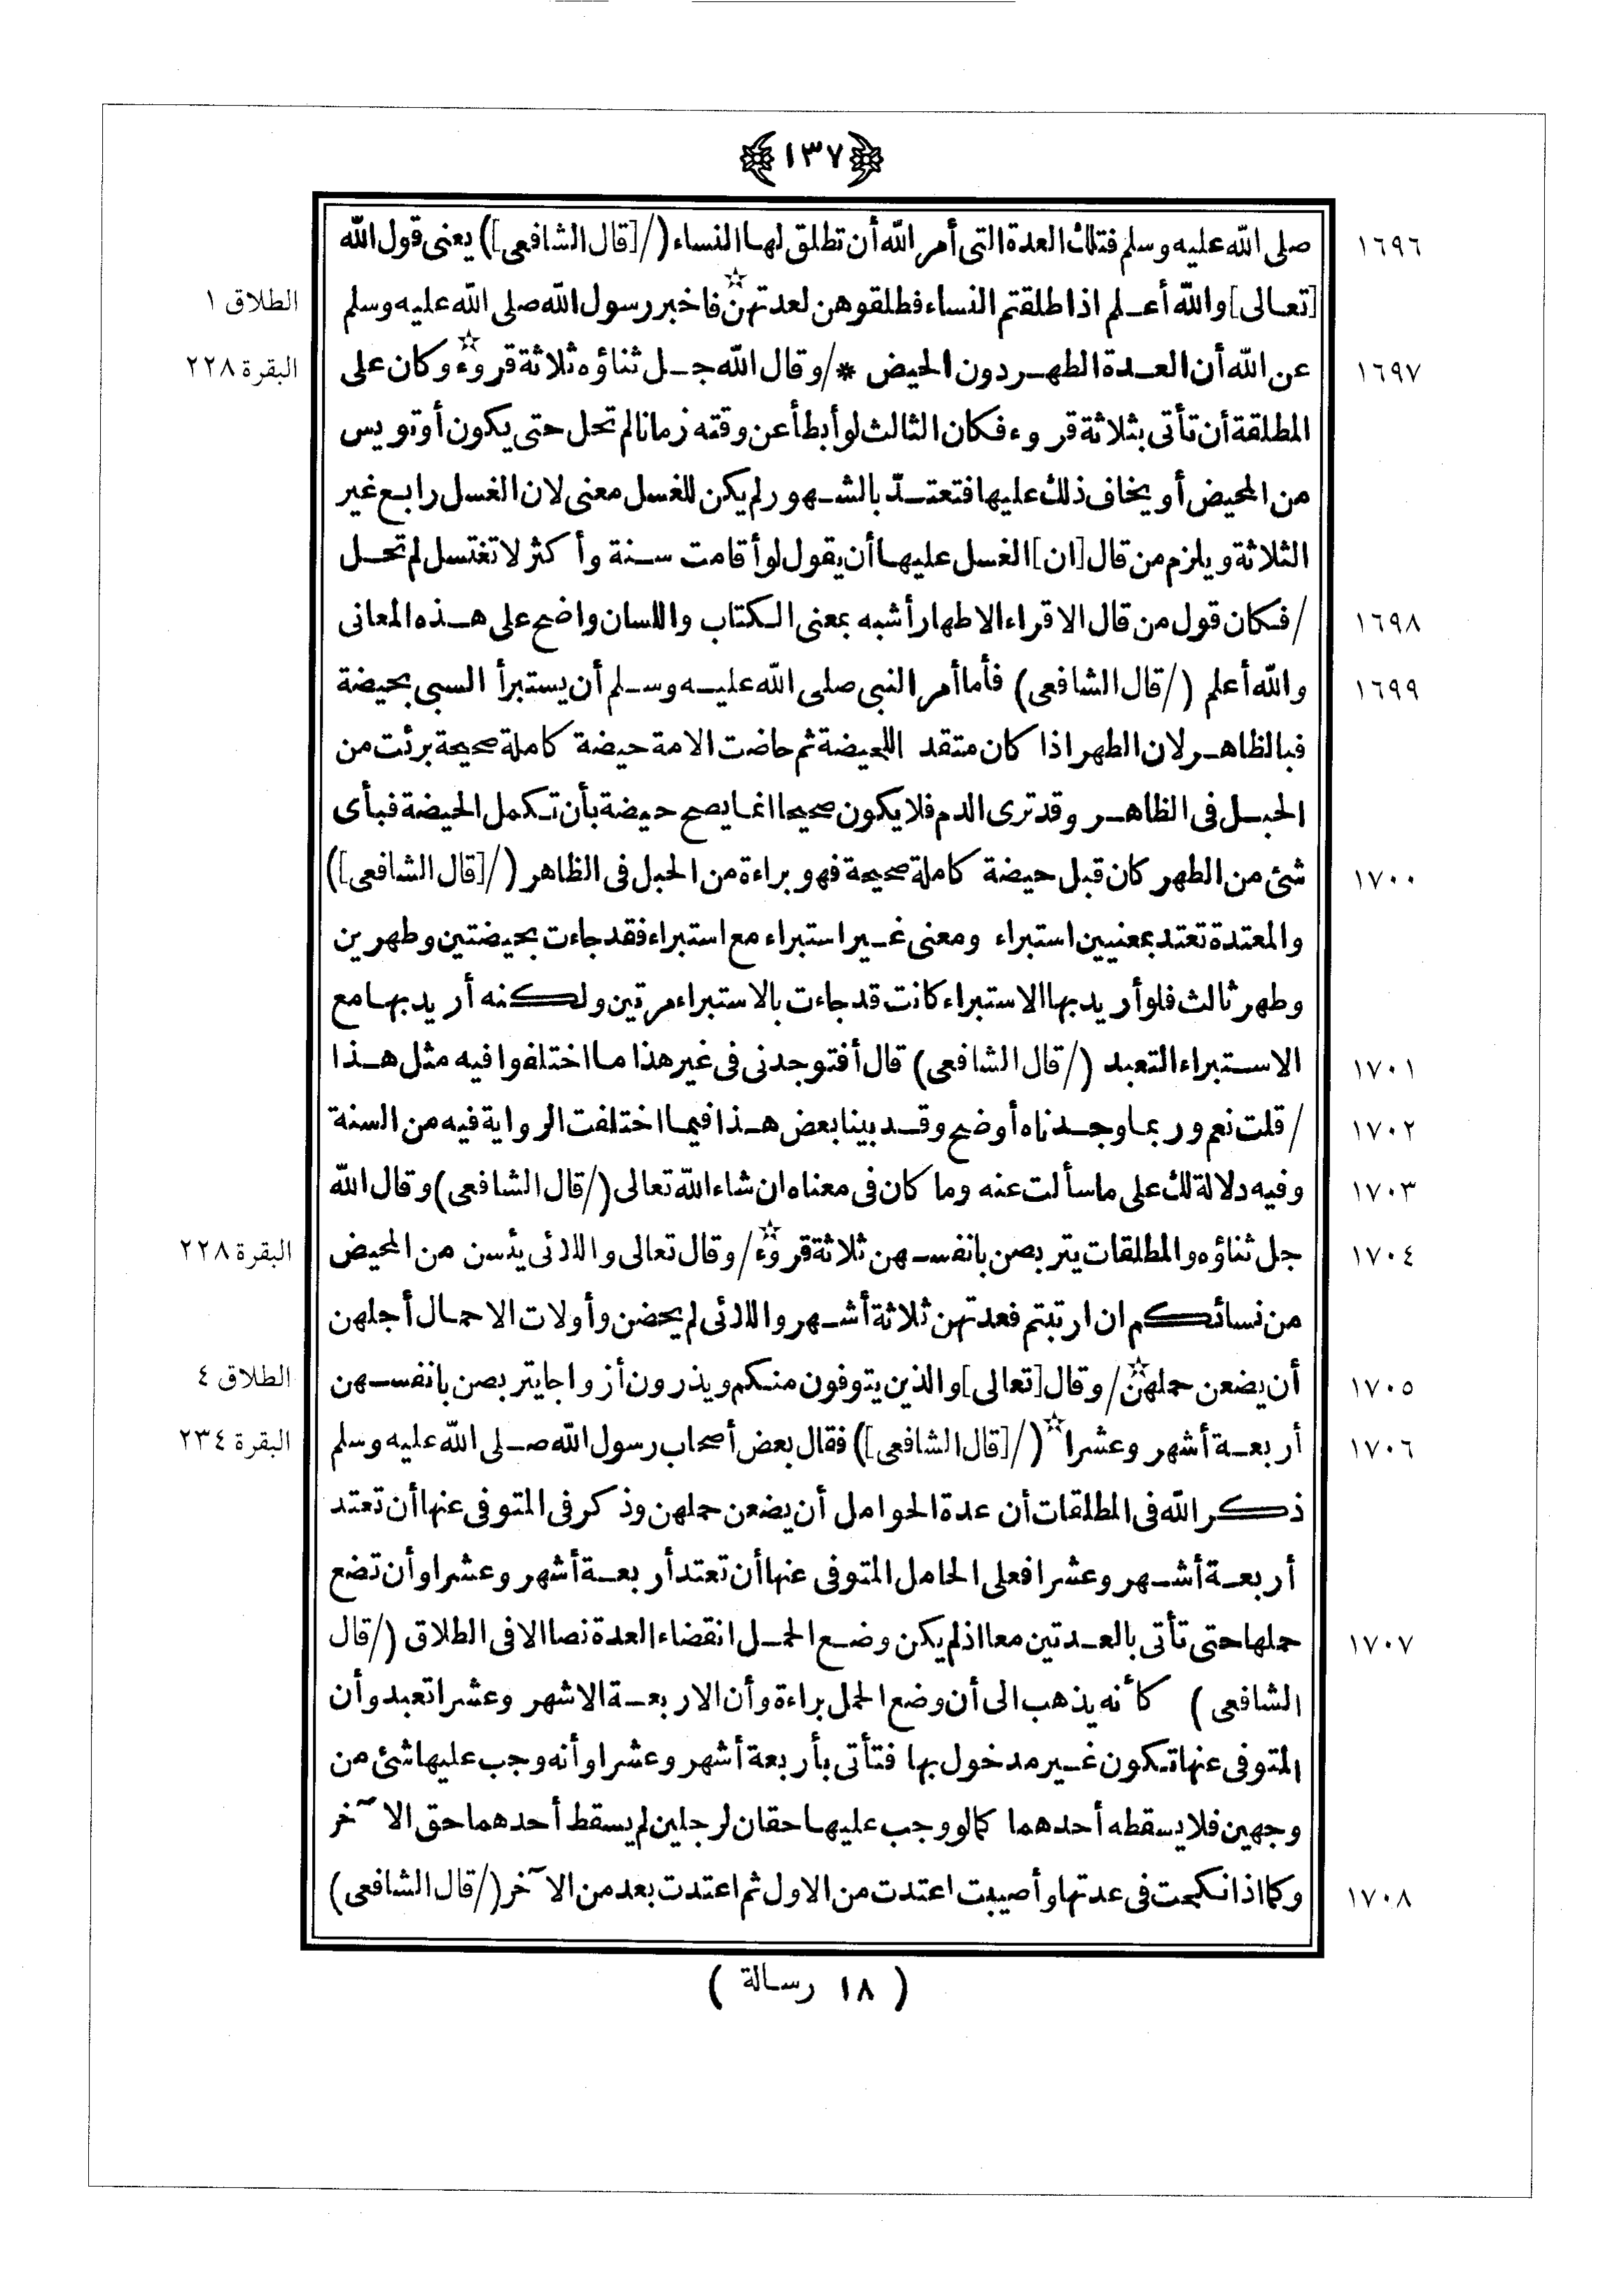 ﴿١٣٧﴾
١٦٩٦ صلى الله عليه وسلم فتلك العدة التى أمر الله أن تطلق لها النساء (/[قال الشافعى]) يعنى قول الله
[تعالى] والله أعلم اذا طلقتم النساء فطلقوهن لعدتهن☆ فاخبر رسول الله صلى الله عليه وسلم الطلاق ١
١٦٩٧ عن الله أن العدة الطهر دون الحيض */وقال الله جل ثناؤه ثلاثة قروء☆ وكان على البقرة ٢٢٨
المطلقة أن تأتى بثلاثة قروء فكان الثالث لو أبطأ عن وقته زمانا لم تحل حتى يكون أو تويس
من المحيض أو يخاف ذلك عليها فتعتدّ بالشهور لم يكن للغسل معنى لان الغسل رابع غير
الثلاثة ويلزم من قال [ان] الغسل عليها أن يقول لو أقامت سنة وأكثر لا تغتسل لم تحل
١٦٩٨ /فكان قول من قال الاقراء الاطهار أشبه بمعنى الكتاب واللسان واضح على هذه المعانى
١٦٩٩ والله أعلم (/قال الشافعى) فأما أمر النبى صلى الله عليه وسلم أن يستبرأ السبى بحيضة
فبالظاهر لان الطهر اذا كان متقد اللحيضة ثم حاضت الامة حيضة كاملة صحيحة برئت من
الحبل فى الظاهر وقد ترى الدم فلا يكون صحيحا انما يصح حيضة بأن تكمل الحيضة فبأى
١٧٠٠ شئ من الطهر كان قبل حيضة كاملة صحيحة فهو براءة من الحبل فى الظاهر (/[قال الشافعى])
والمعتدة تعتد بمعنيين استبراء ومعنى غير استبراء مع استبراء فقد جاءت بحيضتين وطهرين
وطهر ثالث فلو أريد بها الاستبراء كانت قد جاءت بالاستبراء مرتين ولكنه أريد بها مع
١٧٠١ الاستبراء التعبد (/قال الشافعى) قال أفتوجدنى فى غير هذا ما اختلفوا فيه مثل هذا
١٧٠٢ /قلت نعم وربما وجدناه أوضح وقد بينا بعض هذا فيما اختلفت الرواية فيه من السنة
١٧٠٣ وفيه دلالة لك على ما سألت عنه وما كان فى معناه ان شاء الله تعالى (/قال الشافعى) وقال الله
١٧٠٤ جل ثناؤه والمطلقات يتربصن بانفسهن ثلاثة قروء☆/وقال تعالى واللائى يئسن من المحيض البقرة ٢٢٨
من نسائكم ان ارتبتم فعدتهن ثلاثة أشهر واللائى لم يحضن وأولات الاحمال أجلهن
١٧٠٥ أن يضعن حملهن☆/وقال [تعالى] والذين يتوفون منكم ويذرون أزواجا يتربصن بانفسهن الطلاق ٤
١٧٠٦ أربعة أشهر وعشرا☆ (/[قال الشافعى]) فقال بعض أصحاب رسول الله صلى الله عليه وسلم البقرة ٢٣٤
ذكر الله فى المطلقات أن عدة الحوامل أن يضعن حملهن وذكر فى المتوفى عنها أن تعتد
أربعة أشهر وعشرا فعلى الحامل المتوفى عنها أن تعتد أربعة أشهر وعشرا وأن تضع
١٧٠٧ حملها حتى تأتى بالعدتين معا اذ لم يكن وضع الحمل انقضاء العدة نصا الا فى الطلاق (/قال
الشافعى) كأنه يذهب الى أن وضع الحمل براءة وأن الاربعة الاشهر وعشرا تعبد وأن
المتوفى عنها تكون غير مدخول بها فتأتى بأربعة أشهر وعشرا وأنه وجب عليها شئ من
وجهين فلا يسقطه أحدهما كما لو وجب عليها حقان لرجلين لم يسقط أحدهما حق الآخر
١٧٠٨ وكما اذا نكحت فى عدتها وأصيبت اعتدت من الاول ثم اعتدت بعد من الآخر (/قال الشافعى)
( ١٨ رسالة )